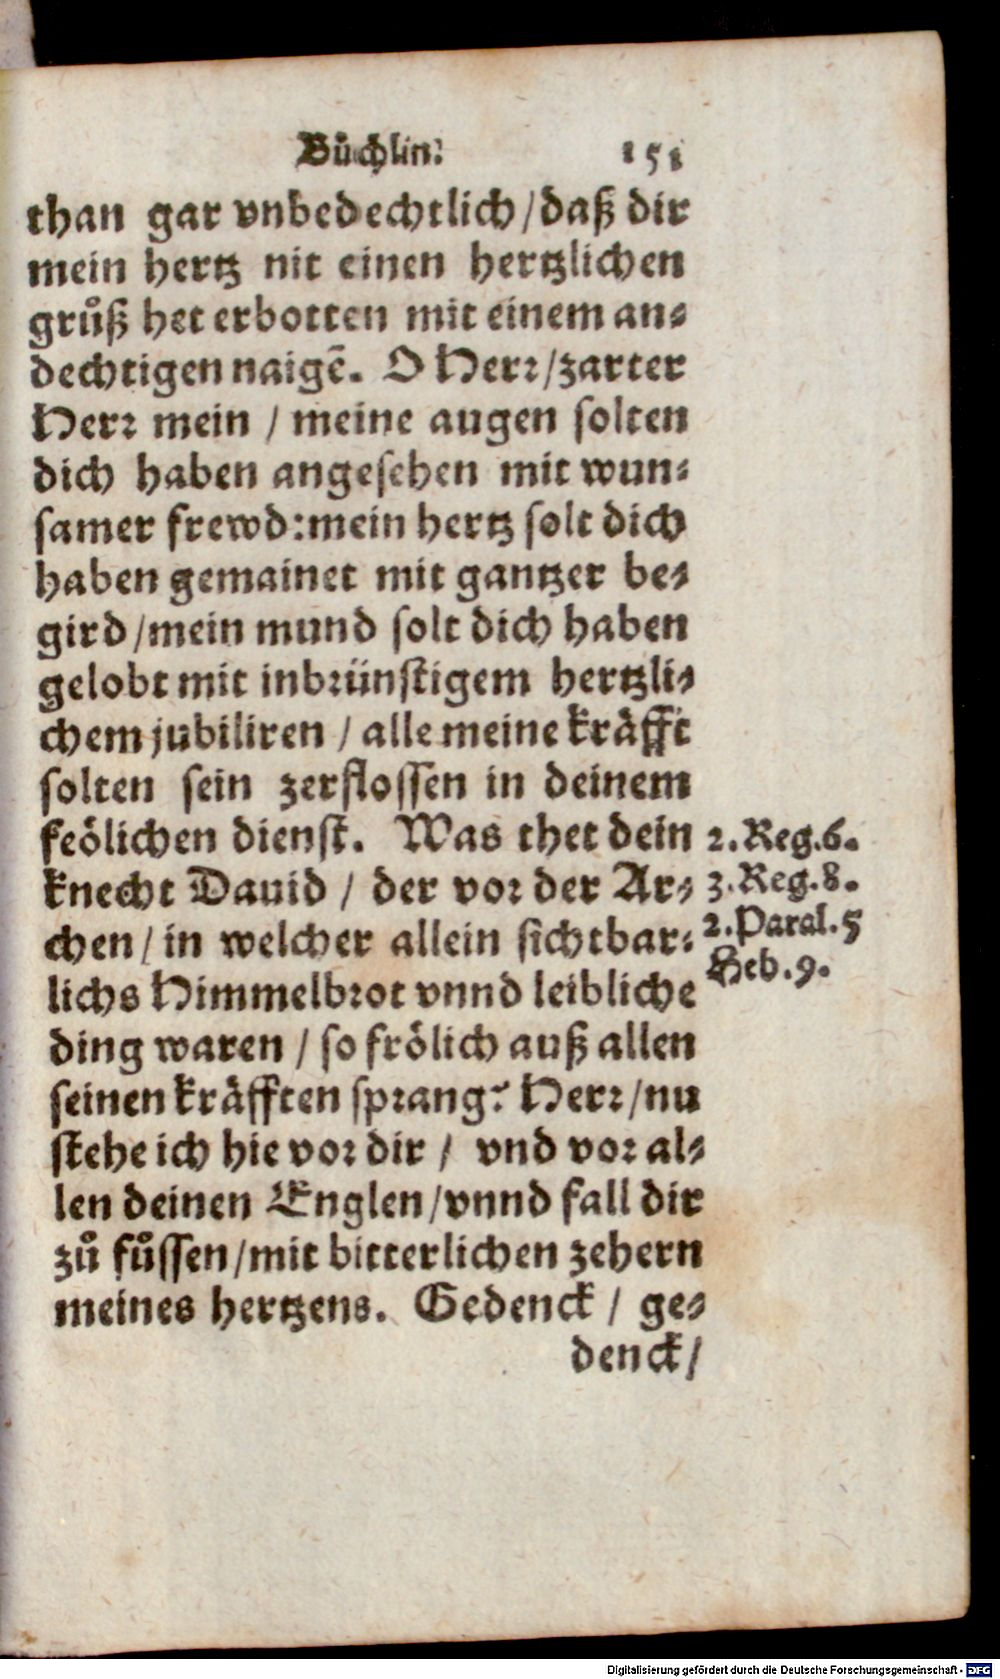 Bůchlin. 151
than gar vnbedechtlich/daß dir
mein hertz nit einen hertzlichen
grůß het erbotten mit einem an⸗
dechtigen naigē. O Herr/zarter
Herr mein / meine augen solten
dich haben angesehen mit wun⸗
samer frewd:mein hertz solt dich
haben gemainet mit gantzer be⸗
gird/mein mund solt dich haben
gelobt mit inbrünstigem hertzli⸗
chem jubiliren / alle meine kräfft
solten sein zerflossen in deinem
feölichen dienst. Was thet dein
knecht Dauid / der vor der Ar⸗
chen/in welcher allein sichtbar⸗
lichs Himmelbrot vnnd leibliche
ding waren / so frölich auß allen
seinen kräfften sprang? Herr/nu
stehe ich hie vor dir / vnd vor al⸗
len deinen Englen/vnnd fall dir
zů fůssen/mit bitterlichen zehern
meines hertzens. Gedenck / ge⸗
denck/
2. Reg.6.
3. Reg.8.
2. Paral.5
Heb.9.
Digitalisierung gefördert durch die Deutsche Forschungsgemeinschaft - DFG